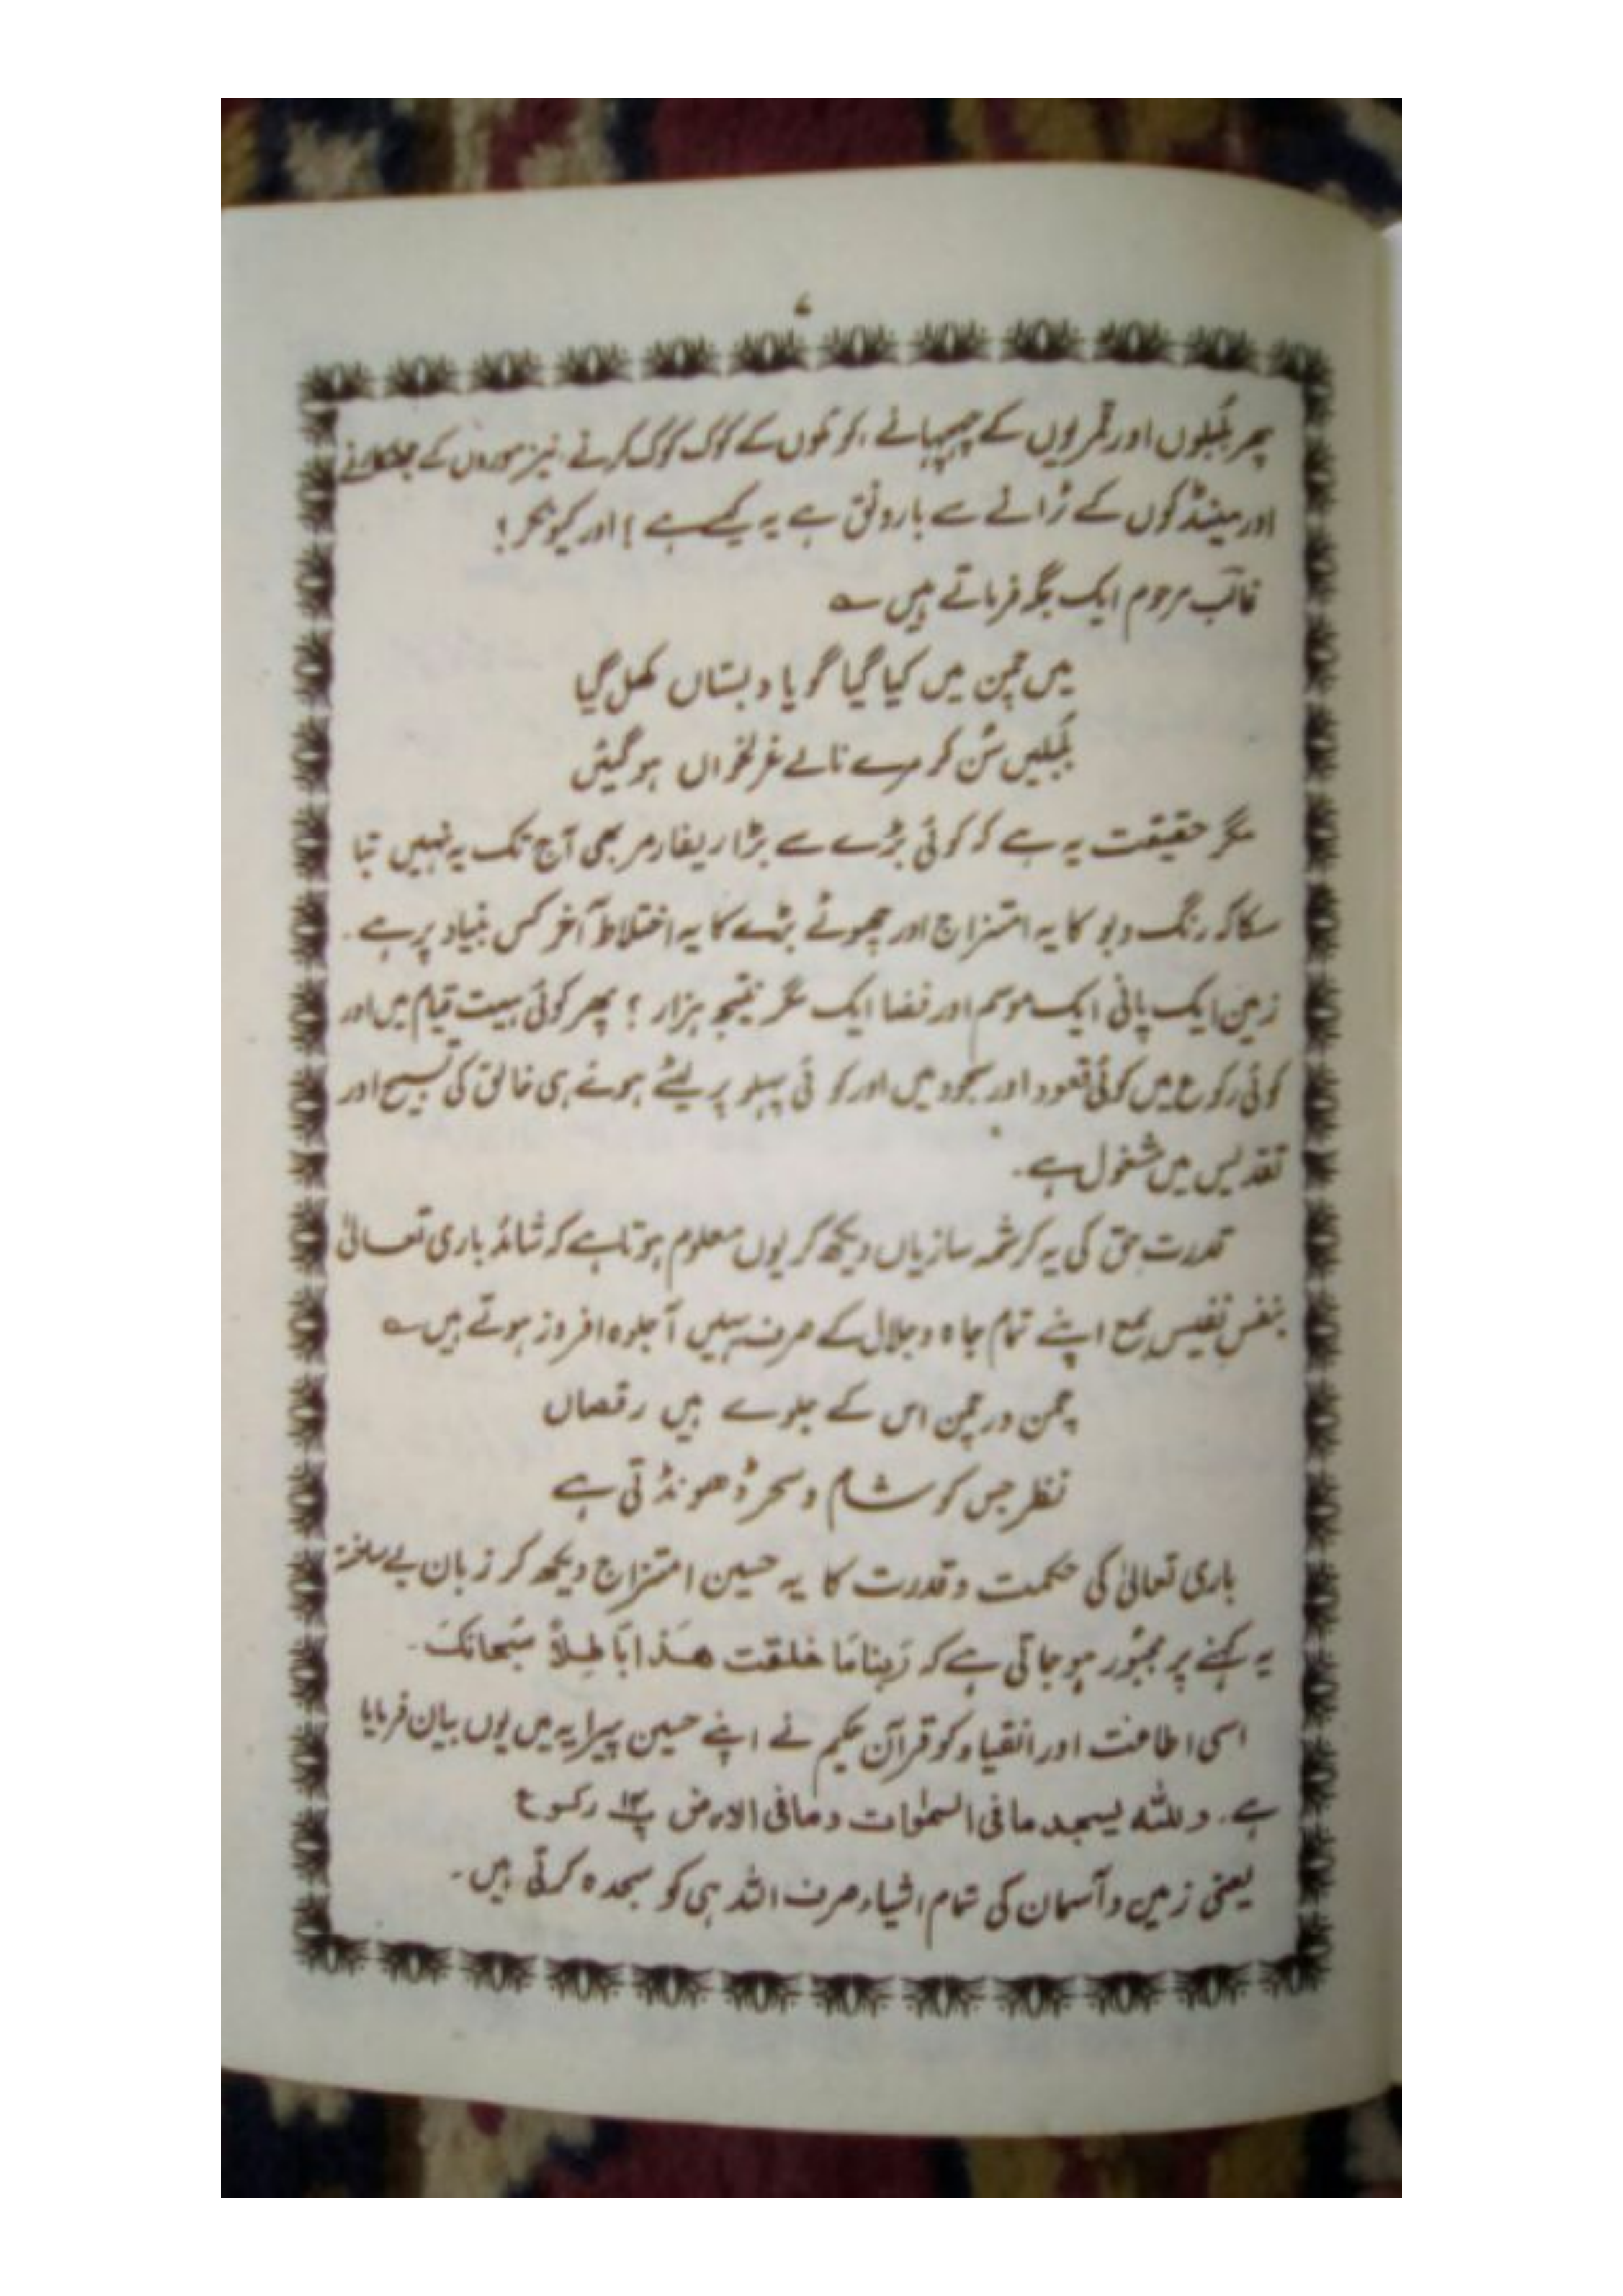 ۷
پھر بُلبلوں اور قمریوں کے چہچہانے، کوئلوں کے کوک کوک کرنے، نیز موروں کے
اور مینڈکوں کے ٹرانے سے بارونق ہے یہ کیسے ہے؟ اور کیونکر؟
غالب مرحوم ایک جگہ فرماتے ہیں ؎
میں چمن میں کیا گیا گویا دبستاں کھل گیا
بُلبلیں سُن کر مرے نالے غزلخواں ہوگیئں
مگر حقیقت یہ ہے کہ کوئی بڑے سے بڑا ریفارمر بھی آج تک یہ نہیں بتا
سکا کہ رنگ و بو کا یہ امتزاج اور چھوٹے بڑے کا یہ اختلاط آخر کس بنیاد پر ہے۔
زمین ایک پانی ایک موسم اور فضا ایک مگر نتیجہ ہزار ؟ پھر کوئی ہیئت قیام میں اور
کوئی رکوع میں کوئی قعود اور سجود میں اور کوئی پہلو پر لیٹے ہوئے ہی خالق کی تسبیح اور
تقدیس میں مشغول ہے۔
قدرت حق کی یہ کرشمہ سازیاں دیکھ کر یوں معلوم ہوتا ہے کہ شائد باری تعالیٰ
بنفسِ نفیس بمع اپنے تمام جاہ و جلال کے صرف یہیں آ جلوہ افروز ہوتے ہیں ؎
چمن در چمن اس کے جلوے ہیں رقصاں
نظر جس کو شام و سحر ڈھونڈتی ہے
باری تعالیٰ کی حکمت و قدرت کا یہ حسین امتزاج دیکھ کر زبان بے ساختہ
یہ کہنے پر مجبُور ہو جاتی ہے کہ رَبنا مَا خلقت هَذا بَاطِلاً سُبحانکَ۔
اسی اطاعت اور انقیاد کو قرآن حکیم نے اپنے حسین پیرایہ میں یوں بیان فرمایا
ہے۔ وللّٰه یسجد ما فی السمٰوات وما فی الارض پ۱۴ رکوع
یعنی زمین و آسمان کی تمام اشیاء صرف اللہ ہی کو سجدہ کرتی ہیں۔